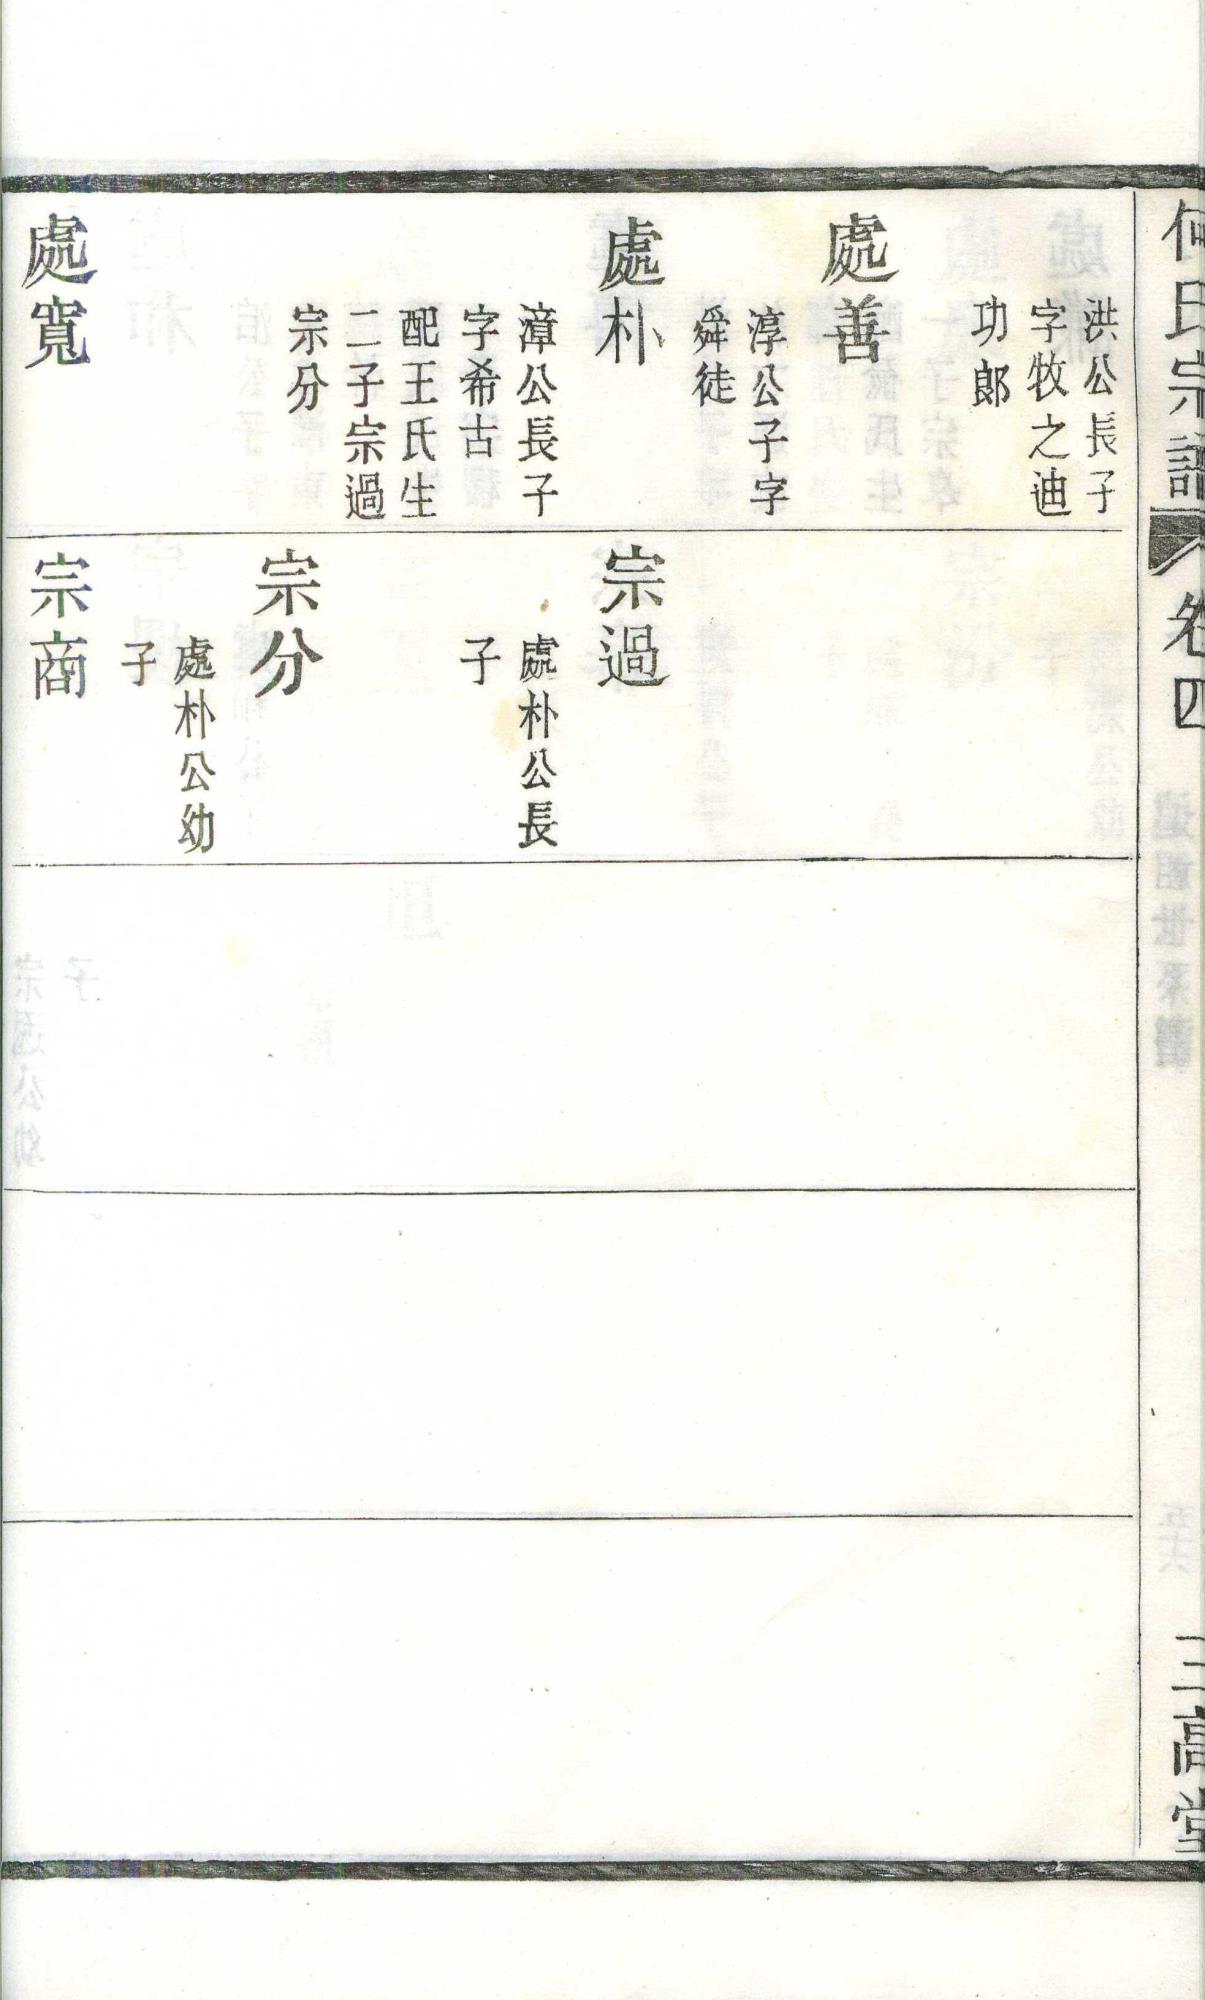 何氏宗譜
卷四
三高堂
洪公長子
字牧之迪
功郎
處善
淳公子字
舜徒
處朴
漳公長子
字希古
配王氏生
二子宗過
宗分
處寬
宗過
處朴公長
子
宗分
處朴公幼
子
宗商